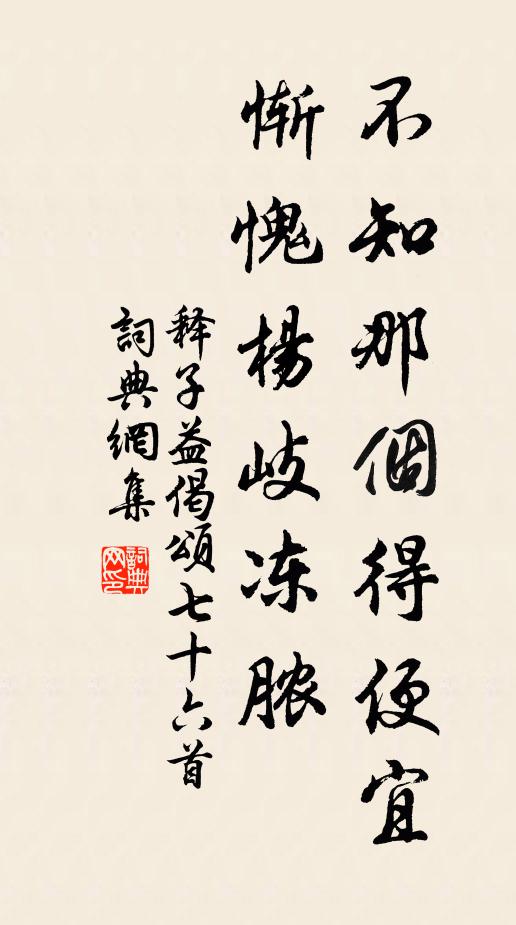 不知那個得便宜
慚愧楊岐冻脓
释子益偈頌七十六首
詞典網集
詞典网印